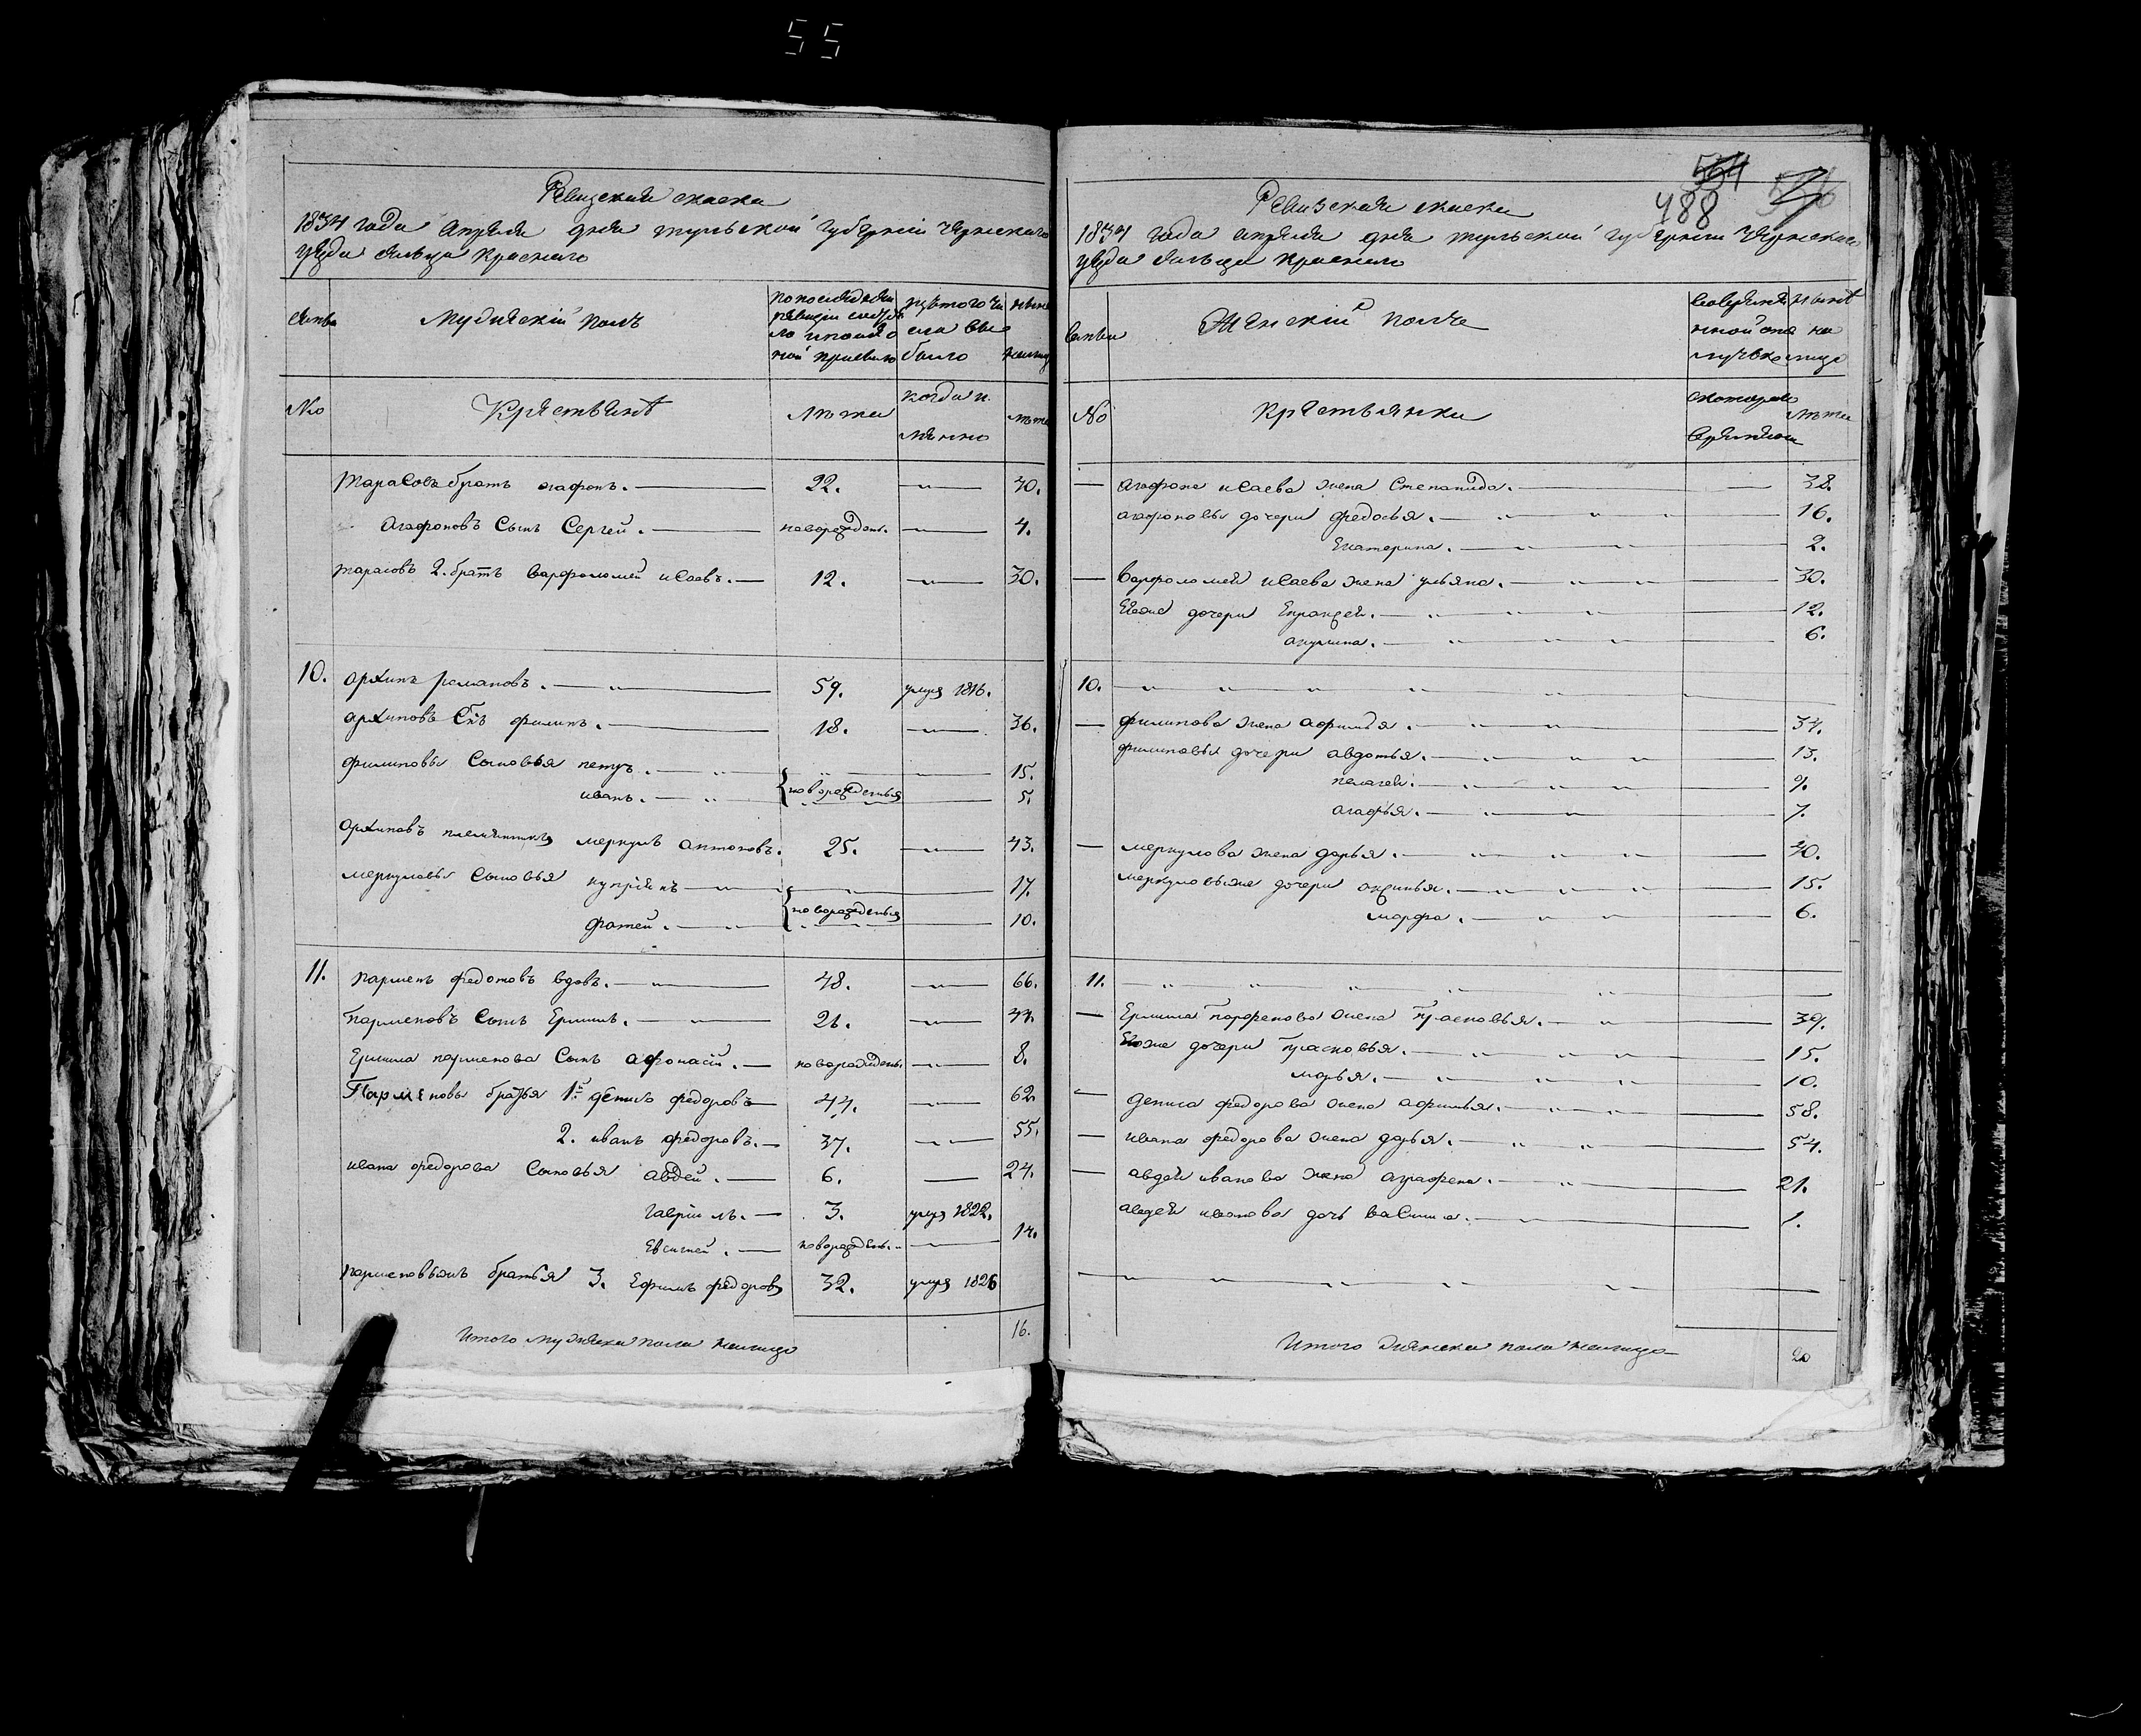 55
Ревизская сказка
1834 года апреля дня тульской губернии чернскаго
уезда сельца Краснаго
Мужеский полъ
было
№
Крестьяне
лета
когда и
имянно
лета
Тарасовъ братъ агафонъ. 22. 30.
Агафоновъ Сынъ Сергей. новорожден. 4.
Тарасовъ 2. братъ варфоломей исаевъ. 12. 30.
10. архипъ романовъ. 59. умре 1816.
архиповъ Снъ филипъ. 18. 36.
филиповы Сыновья петръ. 15.
иванъ. новорожденныя 5.
Архиповъ племянникъ меркулъ антоновъ. 25. 43.
меркуловы Сыновья куприянъ 17.
фатей. новорожденныя 10.
11. парменъ федотовъ вдовъ. 48. 66.
парменовъ Сынъ Ермилъ. 26. 44.
Ермила парменова Сынъ афонасий. новорожденъ. 8.
Парменовы братья 1й денисъ федоровъ 44. 62.
2. иванъ федоровъ. 37. 55.
ивана федорова Сыновья авдей. 6. 24.
гаврилъ. 3. умре 1822.
Евсигней. новорожденъ. 14.
парменовыхъ братья 3. Ефимъ федоровъ 32. умре 1826
16.
Итого мужеска пола налицо
534
488
Ревизская сказка
1834 года апреля дня тульской губернии чернскаго
уезда сельца Краснаго
Женский полъ
№
Крестьянки
лета
агафона исаева жена Степанида. 38.
агафоновы дочери федосья. 16.
Екатерина. 2.
варфоломея исаева жена ульяна. 30.
Евоже дочери Епраксея. 12.
акулина. 6.
10.
филипова жена афимья. 34.
филиповы дочери авдотья. 13.
пелагея. 9.
агафья. 7.
меркулова жена дарья. 40.
меркуловыже дочери аксинья. 15.
марфа. 6.
11.
Ермила парфенова жена прасковья. 39.
Евоже дочери прасковья. 15.
марья. 10.
дениса федорова жена афимья. 58.
ивана федорова жена дарья. 54.
авдея иванова жена аграфена. 21.
авдея иванова дочь васипа. 1.
Итого женска пола налицо 20